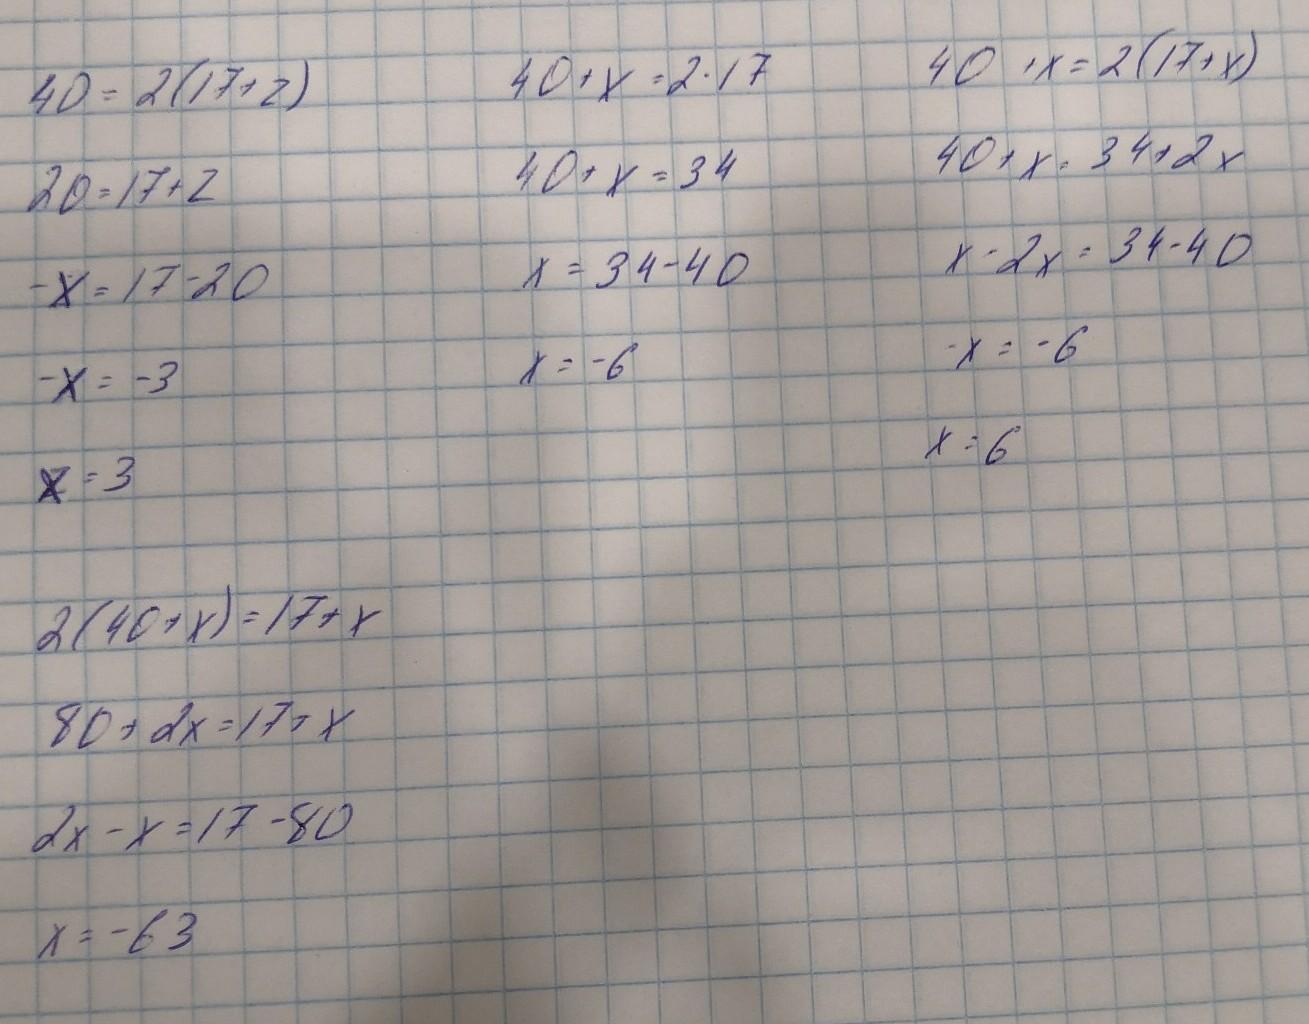 40=2(17+z)
20=17+z
-x=17-20
-x=-3
x=3
40+x=2·17
40+x=34
x=34-40
x=-6
40 +x=2(17+x)
40+x=34+2x
x-2x=34-40
-x=-6
x=6
2(40+x)=17+x
80+2x=17+x
2x-x=17-80
x=-63